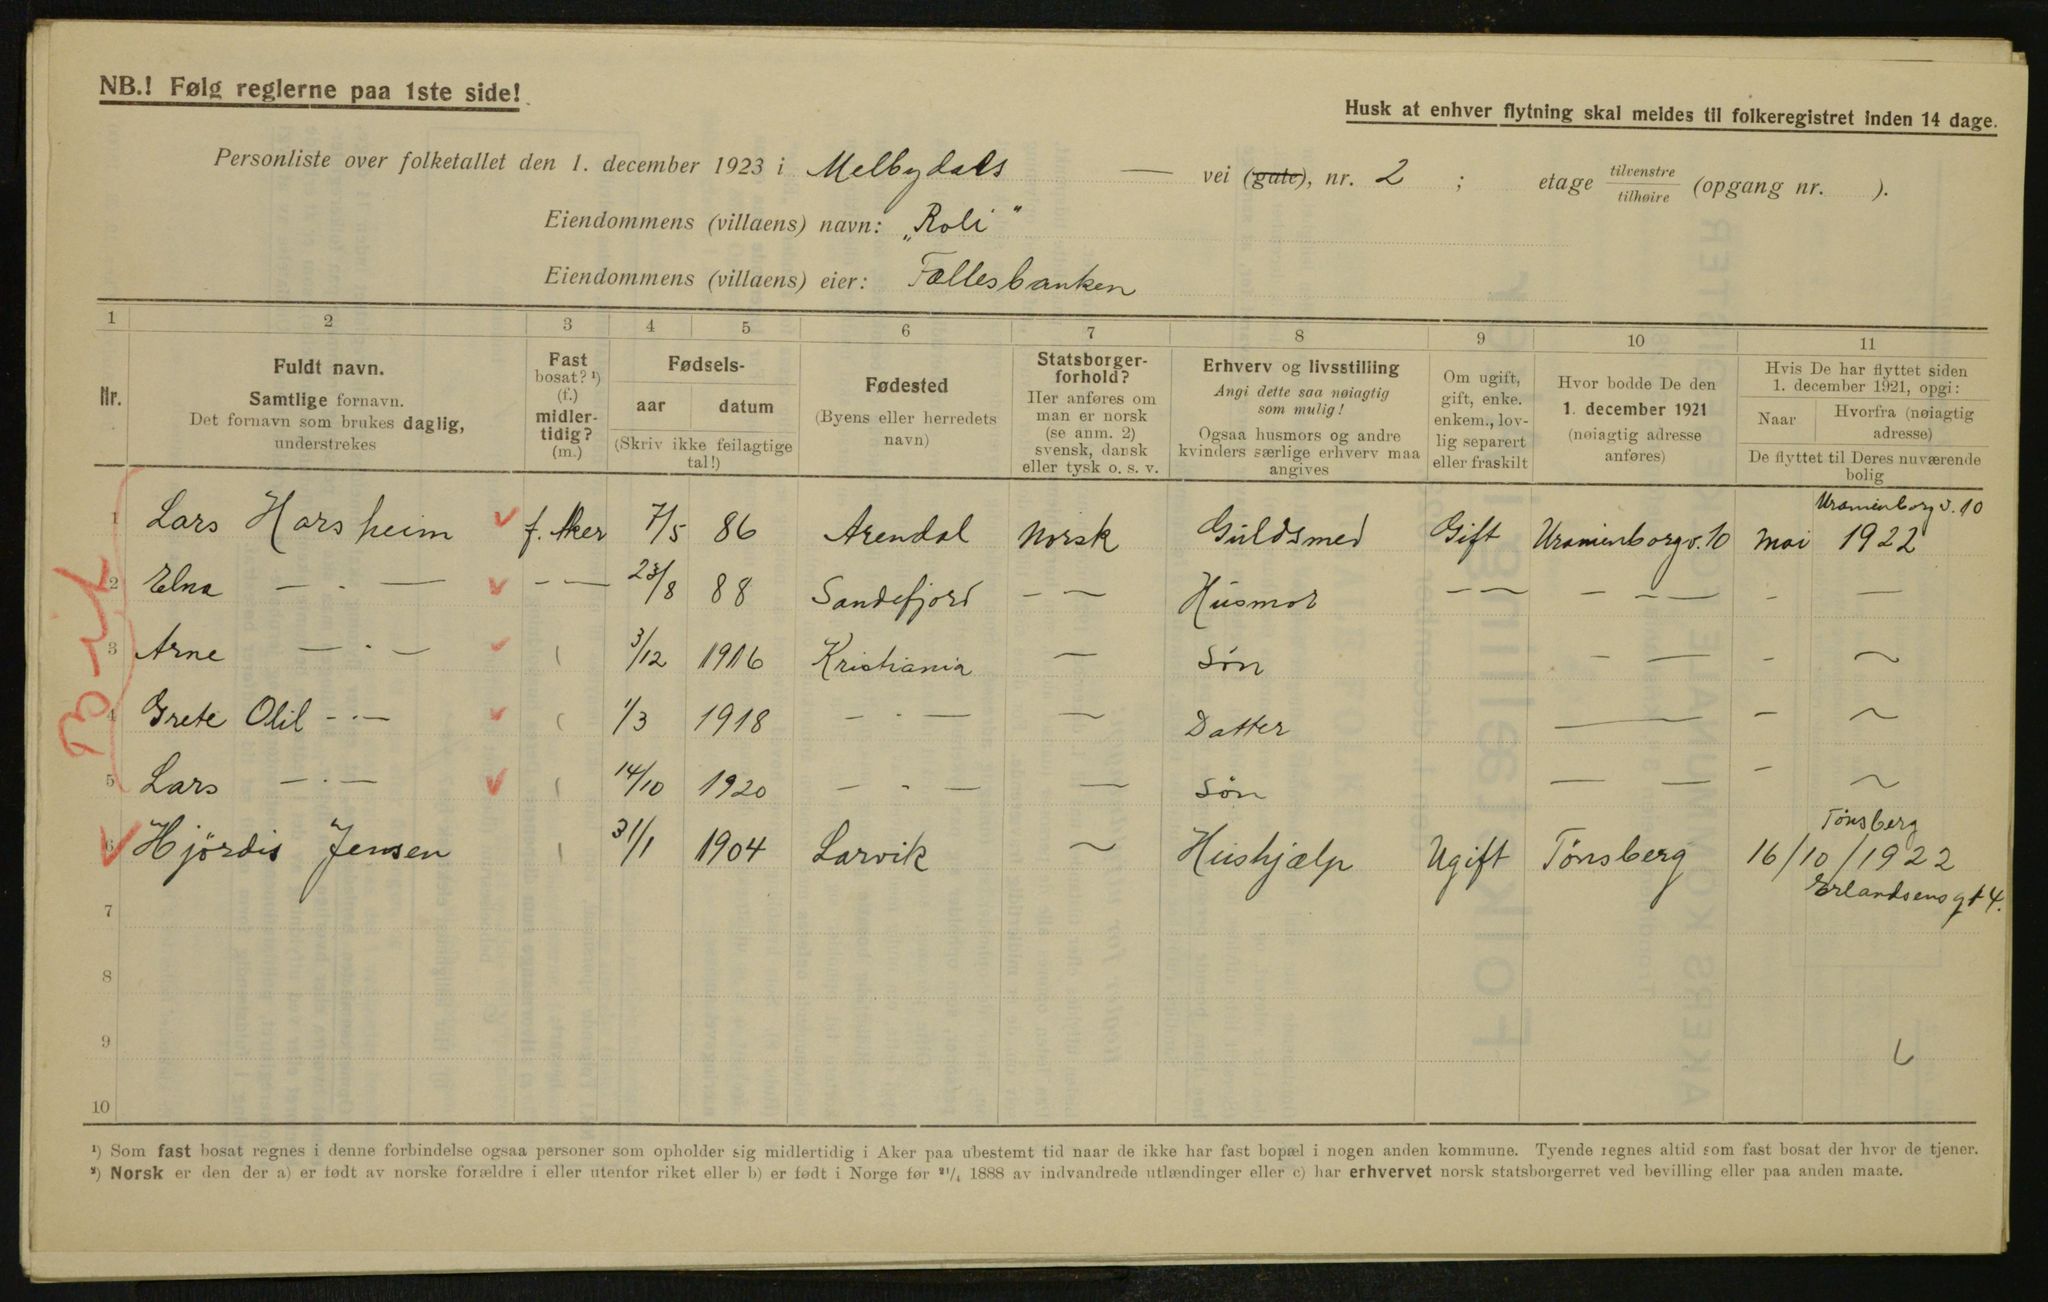 NB.! Følg reglerne paa 1ste side!
Husk at enhver flytning skal meldes til folkeregistret inden 14 dage.
Personliste over folketallet den 1. december 1923 i Melbydals — vei (gate), nr. 2 ; etage tilvenstre tilhøire (opgang nr. ).
Eiendommens (villaens) navn: „Roli“
Eiendommens (villaens) eier: Fællesbanken
1 2 3 4 5 6 7 8 9 10 11
Nr.
Fuldt navn.
Samtlige fornavn.
Det fornavn som brukes daglig,
understrekes
Fast
bosat? ¹)
(f.)
midler-
tidig?
(m.)
Fødsels-
aar datum
(Skriv ikke feilagtige
tal!)
Fødested
(Byens eller herredets
navn)
Statsborger-
forhold?
Her anføres om
man er norsk
(se anm. 2)
svensk, dansk
eller tysk o. s. v.
Erhverv og livsstilling
Angi dette saa nøiagtig
som mulig!
Ogsaa husmors og andre
kvinders særlige erhverv maa
angives
Om ugift,
gift, enke.
enkem., lov-
lig separert
eller fraskilt
Hvor bodde De den
1. december 1921
(nøiagtig adresse
anføres)
Hvis De har flyttet siden
1. december 1921, opgi:
Naar Hvorfra (nøiagtig
adresse)
De flyttet til Deres nuværende
bolig
Uranienborgv. 10
1 Lars Harsheim f. Aker 7/5 86 Arendal Norsk Guldsmed Gift Uranienborgv. 10 mai 1922
2 Elna — · — - — 23/8 88 Sandefjord - — Husmor — — - - — - —
3 Arne — · — 3/12 1916 Kristiania — Søn - — - ~
4 Grete Olil - · — 1/3 1918 - · — — Datter — - ~
5 Lars — · — 14/10 1920 — - — — Søn — — - ~
Tønsberg
6 Hjørdis Jensen 31/1 1904 Larvik ~ Hushjælp Ugift Tønsberg 16/10/1922
Erlandsensgt 4.
7
8
9
10
¹) Som fast bosat regnes i denne forbindelse ogsaa personer som opholder sig midlertidig i Aker paa ubestemt tid naar de ikke har fast bopæl i nogen anden kommune. Tyende regnes altid som fast bosat der hvor de tjener.
²) Norsk er den der a) er født av norske forældre i eller utenfor riket eller b) er født i Norge før ²¹/₄ 1888 av indvandrede utlændinger eller c) har erhvervet norsk statsborgerret ved bevilling eller paa anden maate.